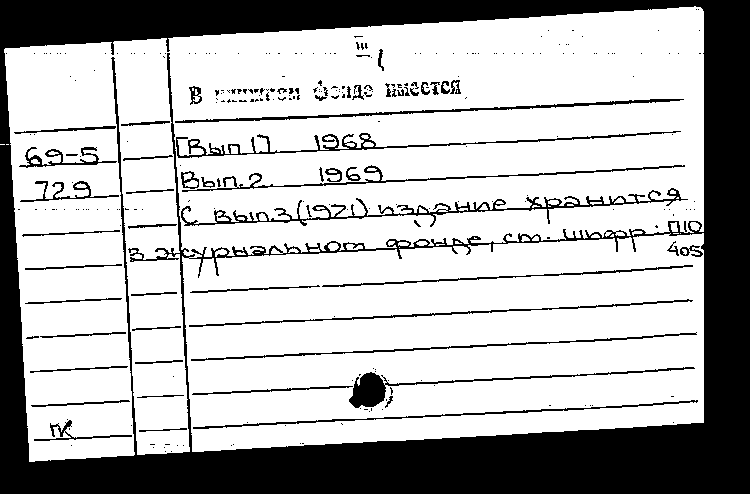 III
В книжном фонде имеется
69-5 [Вып 1] 1968
729 Вып. 2. 1969
С вып. 3 (1971) издание хранится
в журнальном фонде, см. шифр: П10
405
пк